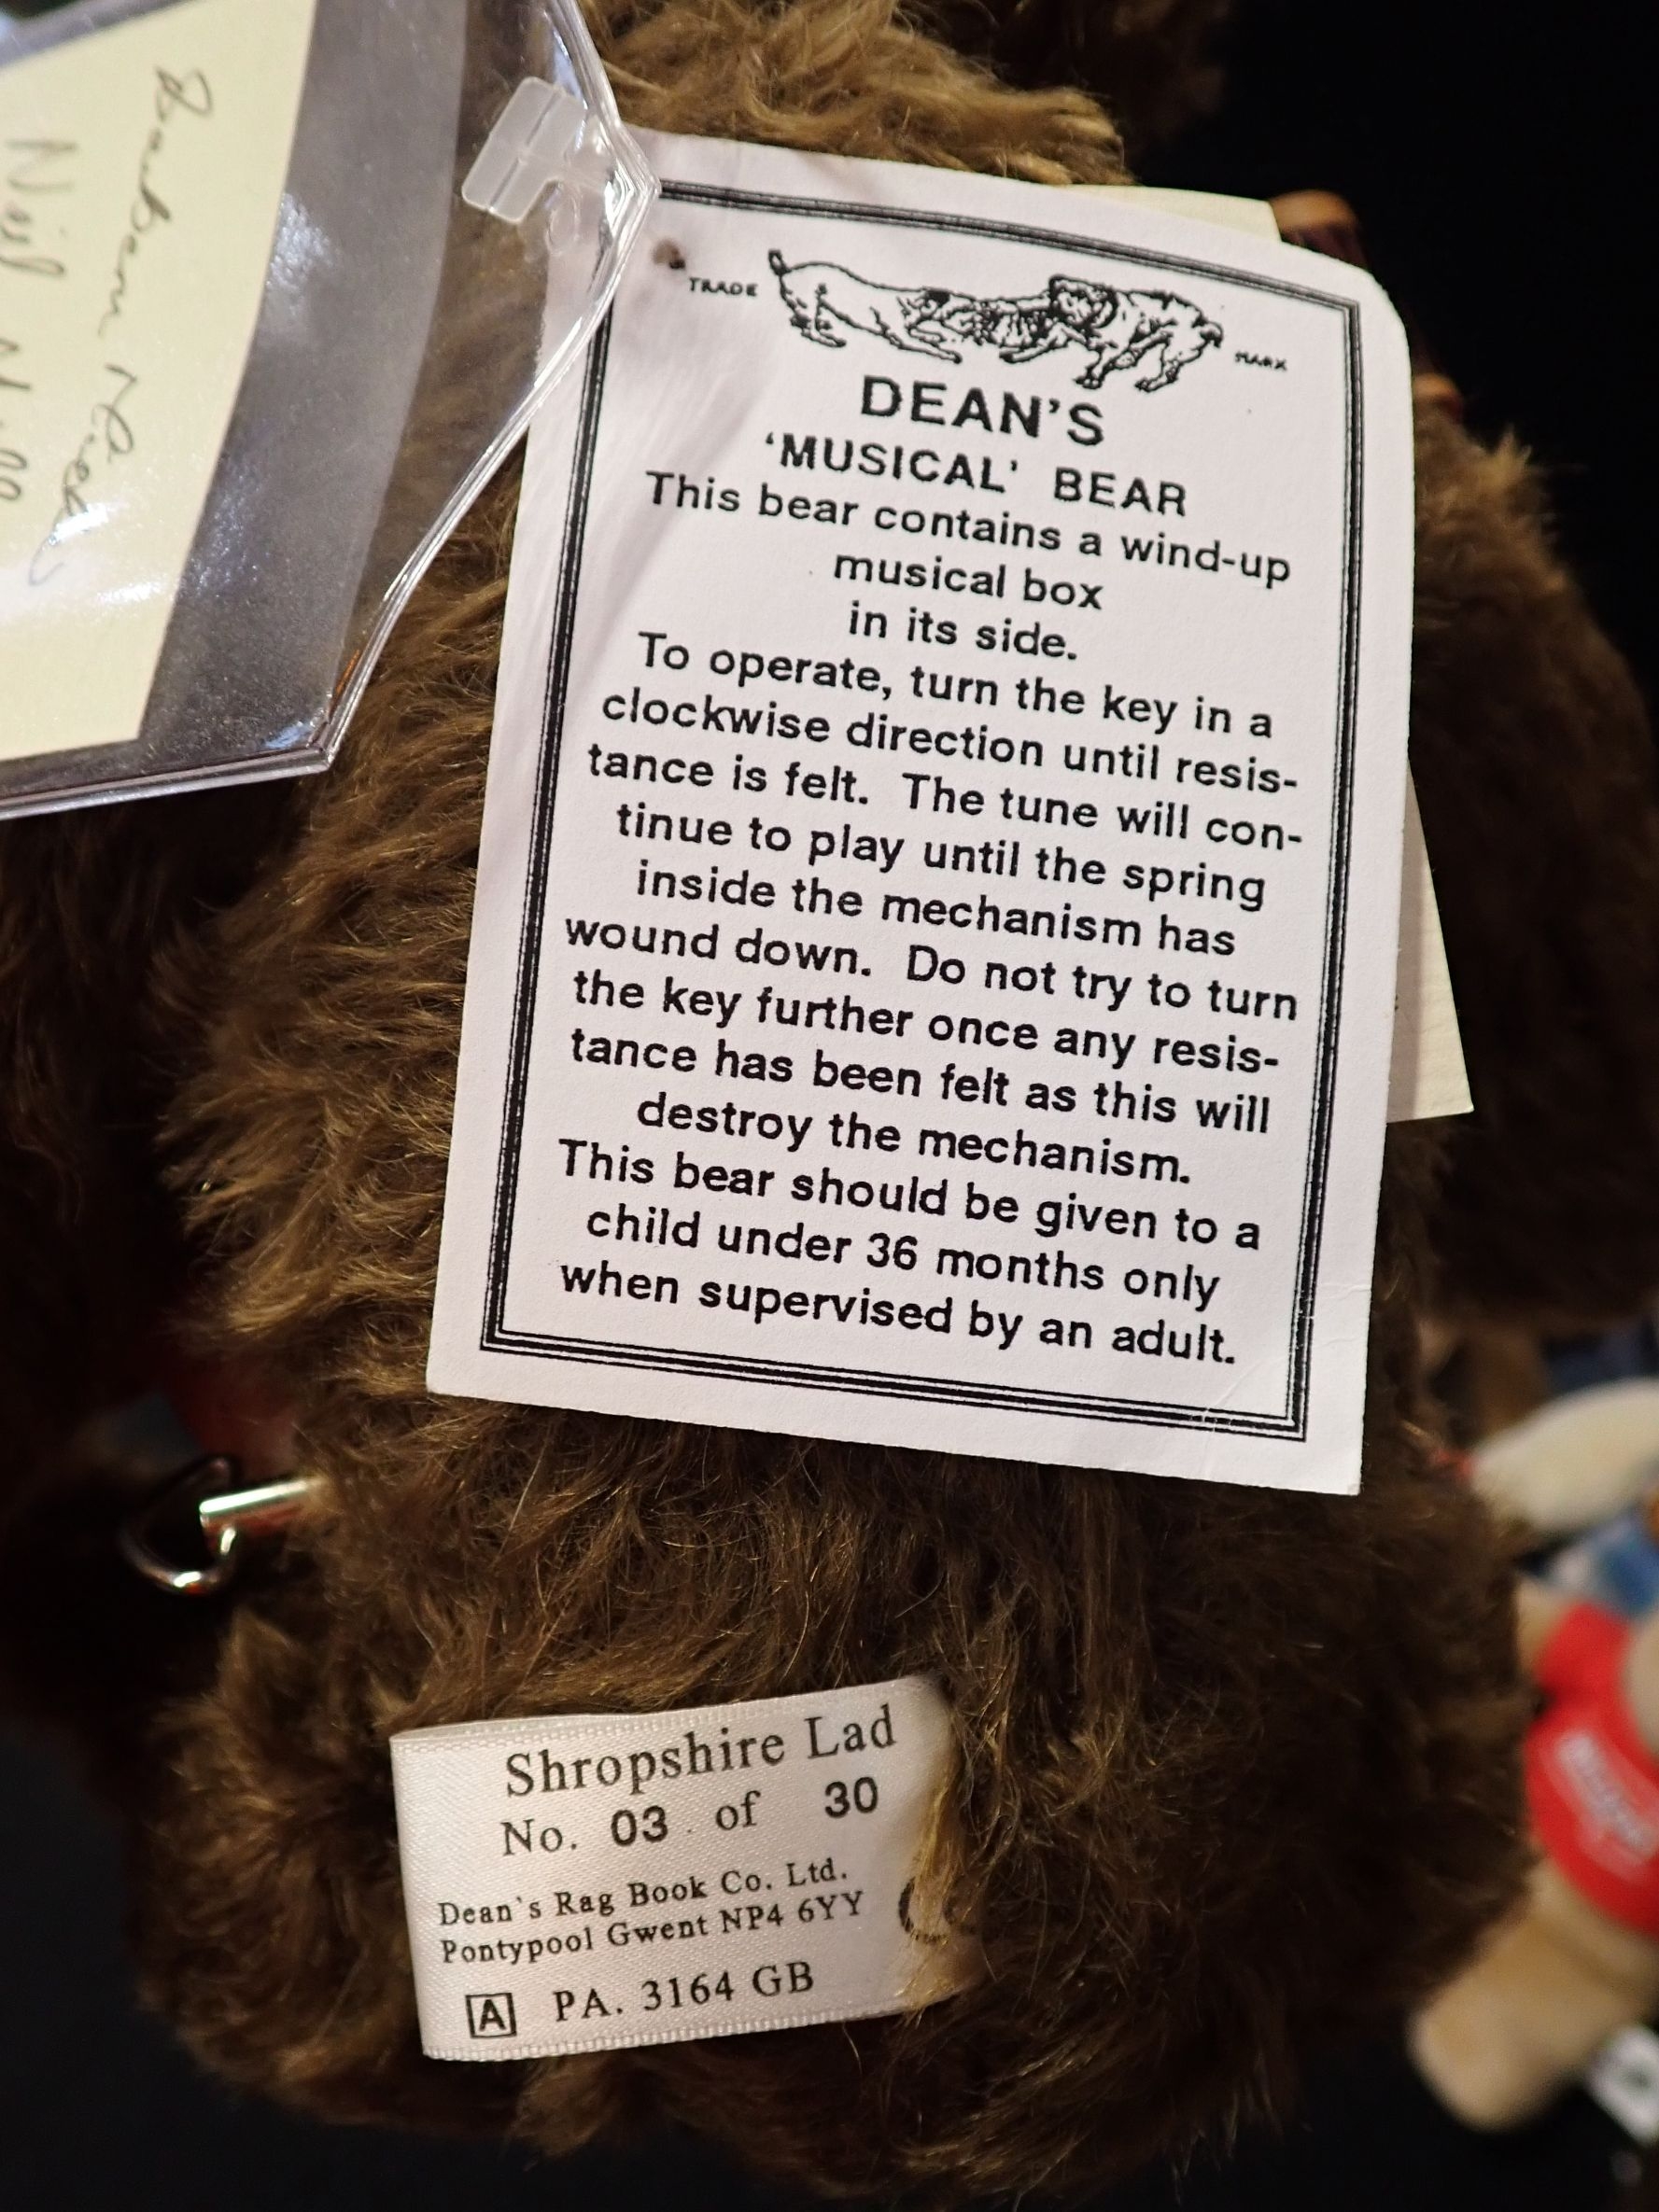 TRADE MARK
DEAN'S
'MUSICAL' BEAR
This bear contains a wind-up
musical box
in its side.
To operate, turn the key in a
clockwise direction until resis-
tance is felt. The tune will con-
tinue to play until the spring
inside the mechanism has
wound down. Do not try to turn
the key further once any resis-
tance has been felt as this will
destroy the mechanism.
This bear should be given to a
child under 36 months only
when supervised by an adult.
Shropshire Lad
No. 03 of 30
Dean's Rag Book Co. Ltd.
Pontypool Gwent NP4 6YY
A PA. 3164 GB